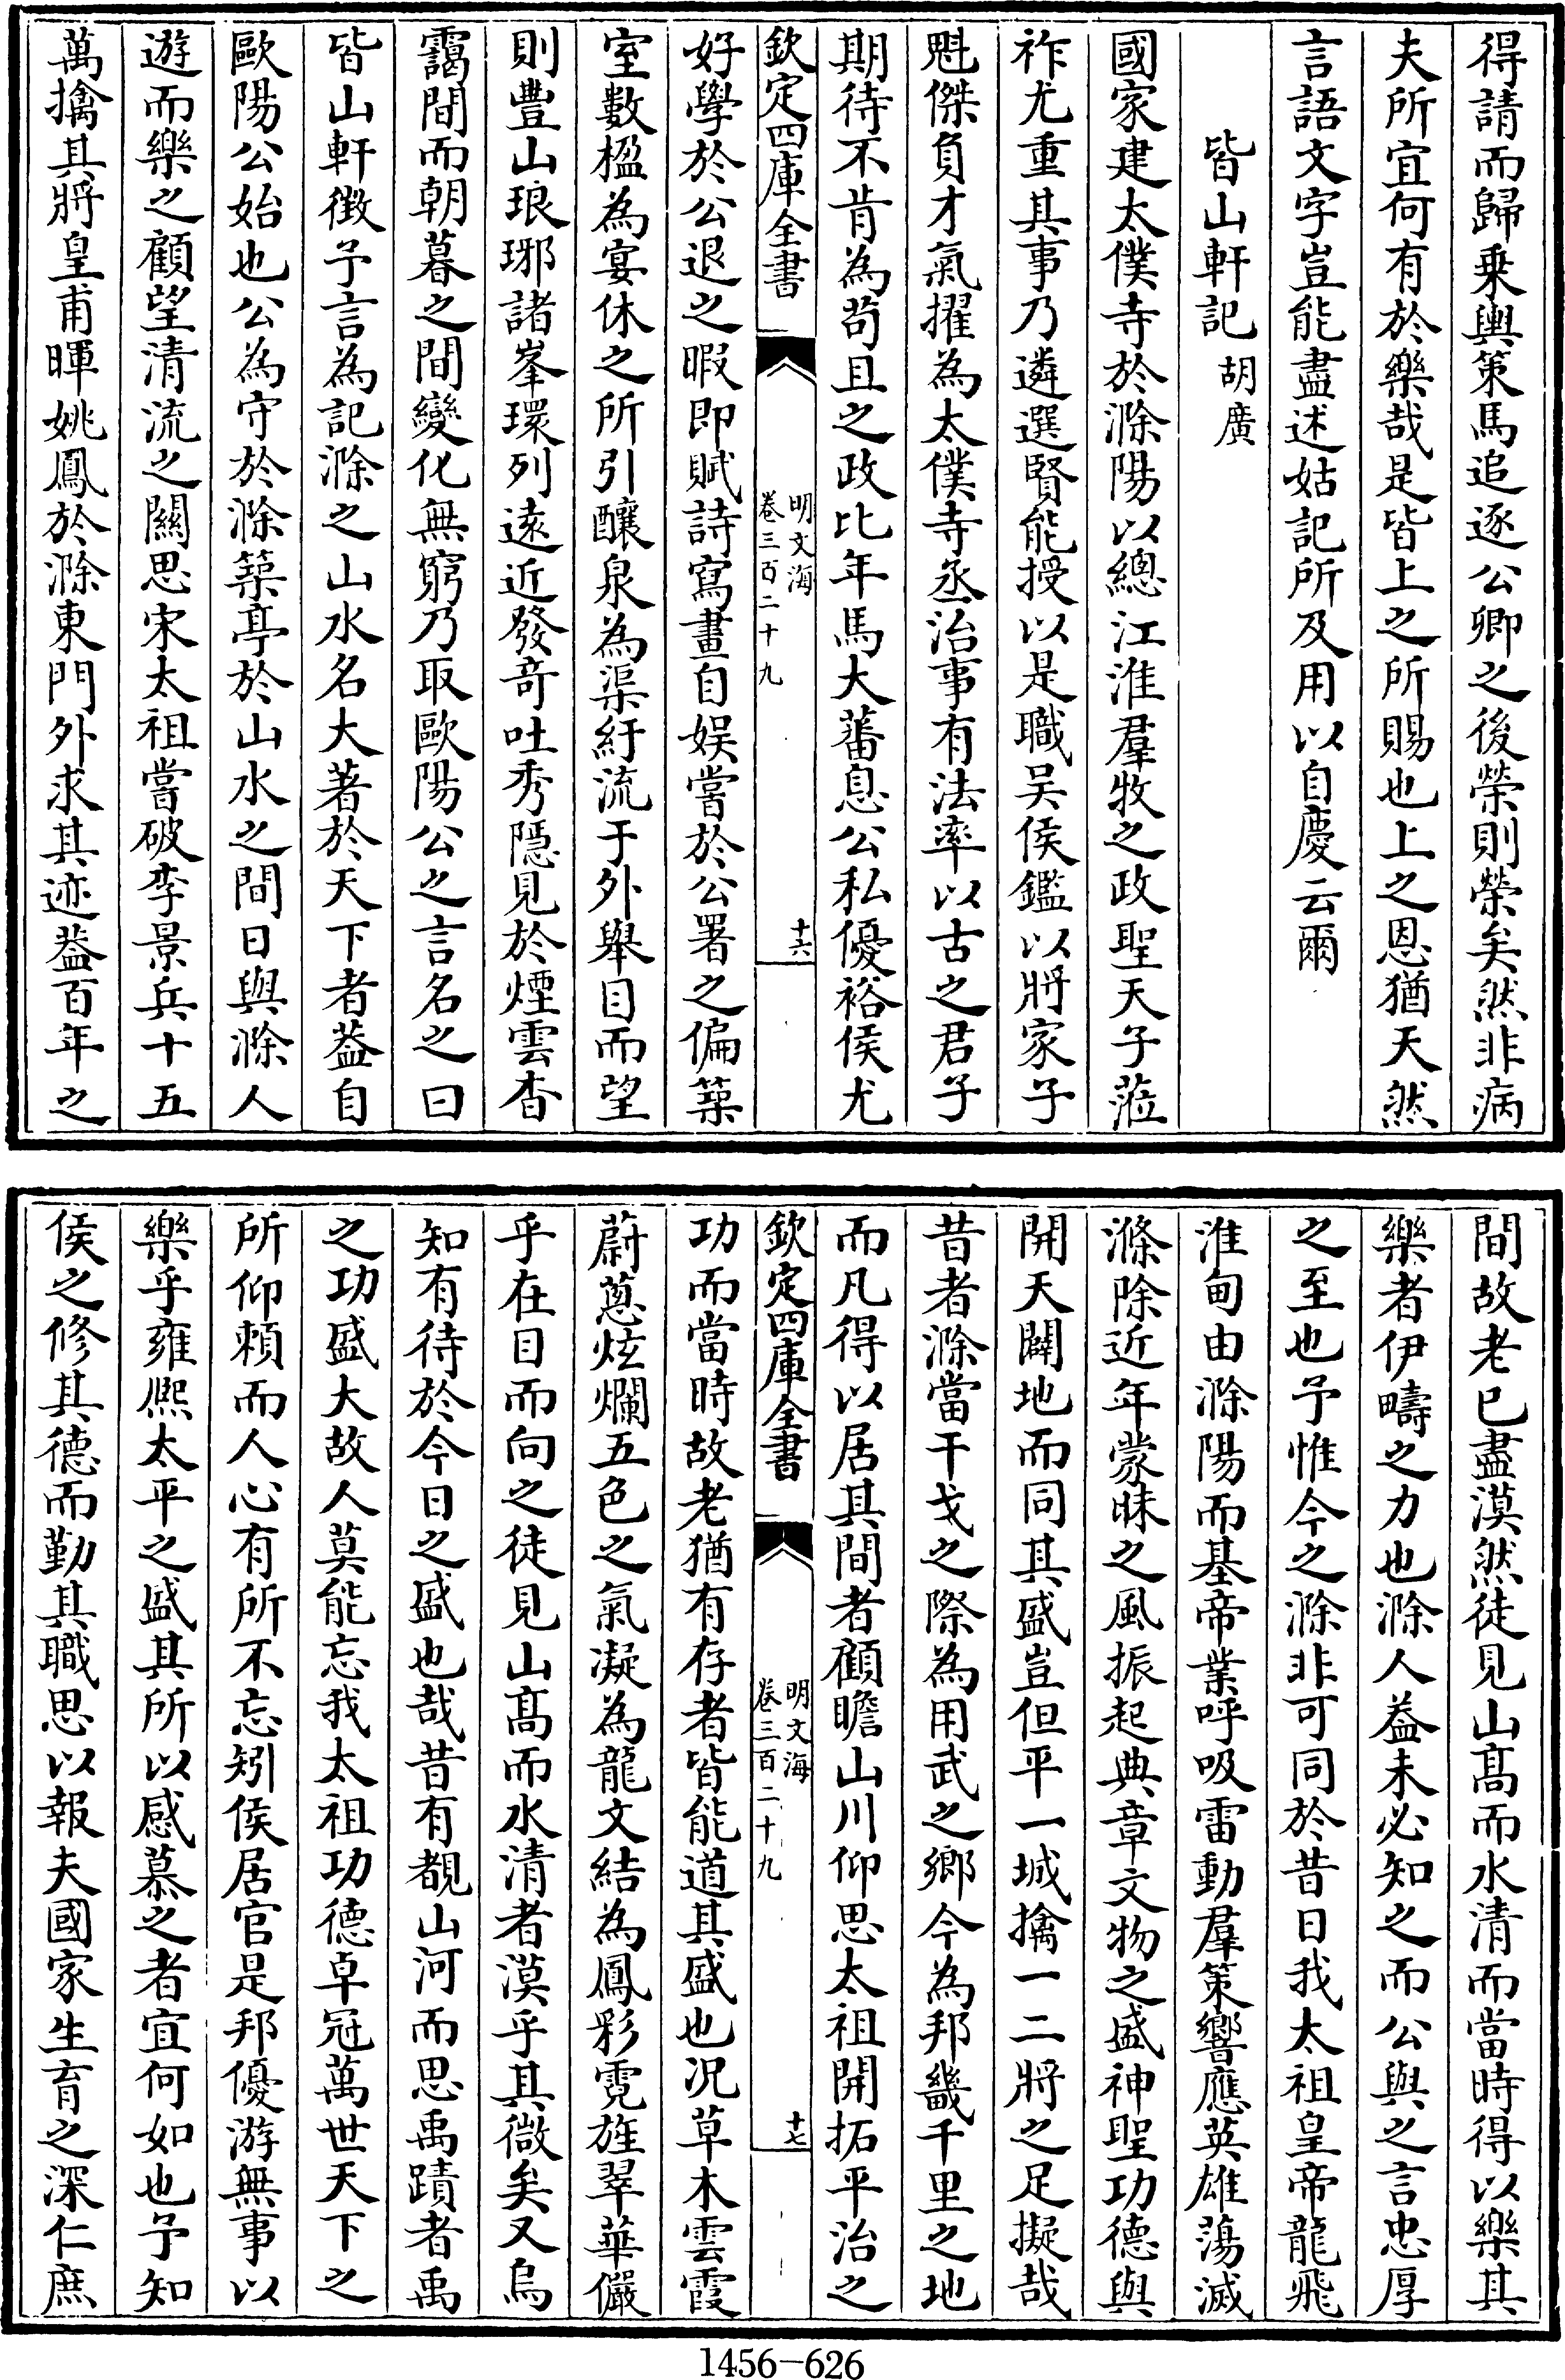 得請而歸乗輿策馬追逐公卿之後榮則榮矣然非病
夫所宜何有於樂哉是皆上之所賜也上之恩猶天然
言語文字豈能盡述姑記所及用以自慶云爾
皆山軒記 胡廣
國家建太僕寺於滁陽以總江淮羣牧之政聖天子蒞
祚尤重其事乃遴選賢能授以是職吴侯鑑以將家子
魁傑負才氣擢為太僕寺丞治事有法率以古之君子
期待不肯為茍且之政比年馬大蕃息公私優裕侯尤
欽定四庫全書
明文海
卷三百二十九
十六
好學於公退之暇即賦詩寫畫自娱嘗於公署之偏築
室數楹為宴休之所引釀泉為渠紆流于外舉目而望
則豊山琅琊諸峯環列逺近發竒吐秀隠見於煙雲杳
靄間而朝暮之間變化無窮乃取歐陽公之言名之曰
皆山軒徴予言為記滁之山水名大著於天下者葢自
歐陽公始也公為守於滁築亭於山水之間日與滁人
遊而樂之顧望清流之關思宋太祖嘗破李景兵十五
萬擒其將皇甫暉姚鳳於滁東門外求其迹葢百年之
間故老已盡漠然徒見山髙而水清而當時得以樂其
樂者伊疇之力也滁人葢未必知之而公與之言忠厚
之至也予惟今之滁非可同於昔日我太祖皇帝龍飛
淮甸由滁陽而基帝業呼吸雷動羣策響應英雄蕩滅
滌除近年蒙昧之風振起典章文物之盛神聖功德與
開天闢地而同其盛豈但平一城擒一二將之足擬哉
昔者滁當干戈之際為用武之鄉今為邦畿千里之地
而凡得以居其間者顧瞻山川仰思太祖開拓平治之
欽定四庫全書
明文海
卷三百二十九
十七
功而當時故老猶有存者皆能道其盛也况草木雲霞
蔚蔥炫爛五色之氣凝為龍文結為鳳彩霓旌翠華儼
乎在目而向之徒見山髙而水清者漠乎其微矣又烏
知有待於今日之盛也哉昔有覩山河而思禹蹟者禹
之功盛大故人莫能忘我太祖功德卓冠萬世天下之
所仰頼而人心有所不忘矧侯居官是邦優游無事以
樂乎雍熈太平之盛其所以感慕之者宜何如也予知
侯之修其德而勤其職思以報夫國家生育之深仁庶
1456-626